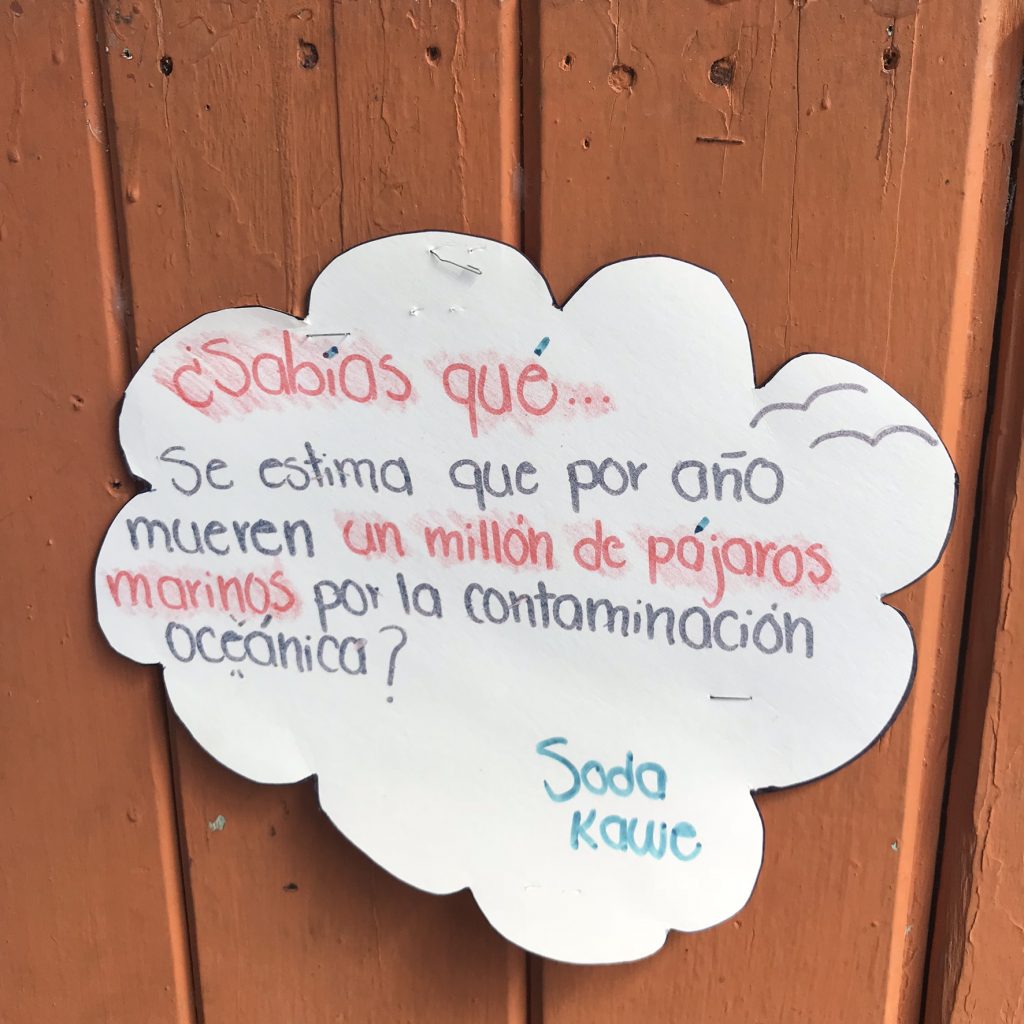 ¿Sabías qué...
Se estima que por año
mueren un millón de pájaros
marinos por la contaminación
oceánica?
Soda
Kawe